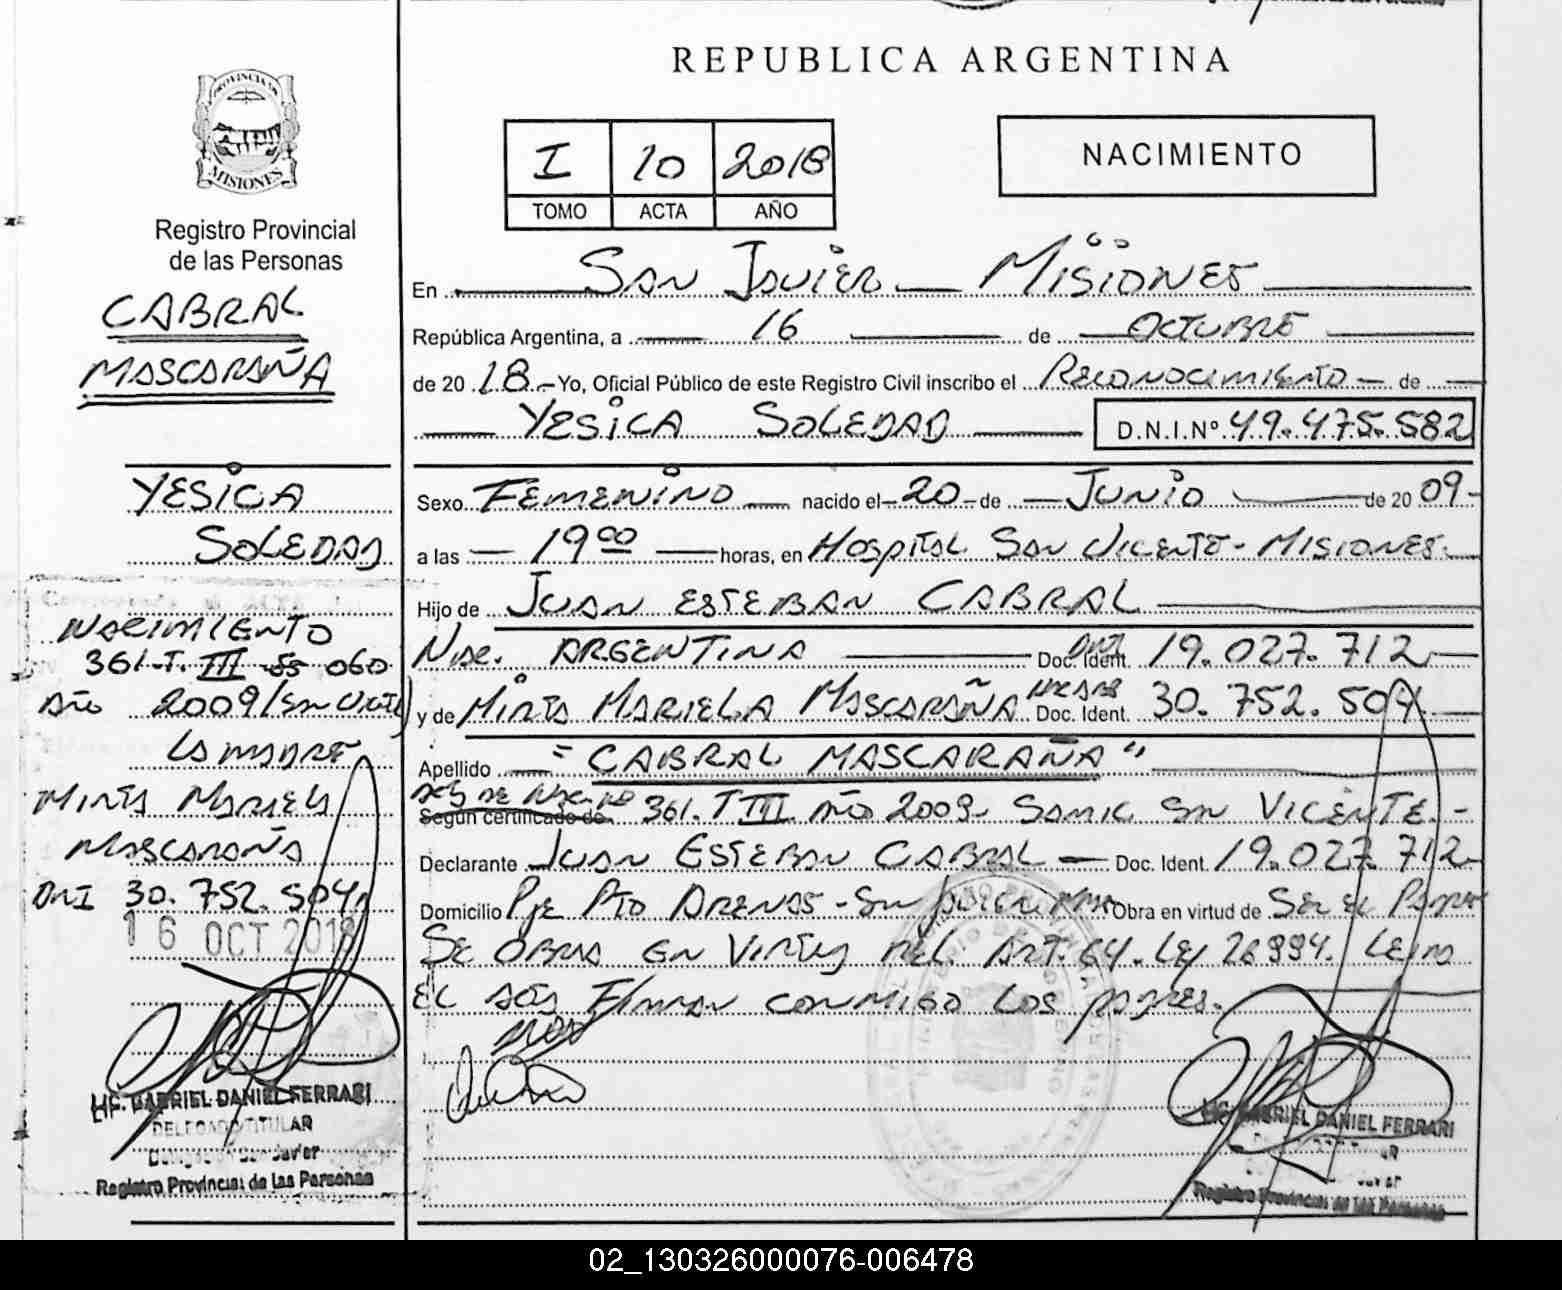 REPUBLICA ARGENTINA
PROVINCIA DE
MISIONES
Registro Provincial
de las Personas
CABRAL
MASCARAÑA
YESICA
SOLEDAD
NACIMIENTO
361-T. III 060
Año 2009/
LA MADRE
MIRTA MARIELA
MASCARAÑA
DNI 30.752.504
16 OCT 2018
LIC. GABRIEL DANIEL FERRARI
DELEGADO TITULAR
Registro Provincial de las Personas
I 10 2018
TOMO ACTA AÑO
NACIMIENTO
En SAN JAVIER MISIONES
República Argentina, a 16 de OCTUBRE
de 20 18.- Yo, Oficial Público de este Registro Civil inscribo el RECONOCIMIENTO de
YESICA SOLEDAD D.N.I.Nº 49.475.582
Sexo FEMENINO nacido el 20 de JUNIO de 20 09-
a las 19 00 horas, en HOSPITAL SAN VICENTE - MISIONES.
Hijo de JUAN ESTEBAN CABRAL
NAC. ARGENTINA DNI Doc. Ident. 19.027.712
y de MIRTA MARIELA MASCARAÑA Doc. Ident. 30.752.504
Apellido "CABRAL MASCARAÑA"
Según certificado de 361. T III AÑO 2009- SAMIC SAN VICENTE.-
Declarante JUAN ESTEBAN CABRAL Doc. Ident. 19.027.712-
Domicilio PJE PTO ARENAS - Obra en virtud de SER EL PADRE
SE OBRA EN VIRTUD DEL ART. 64. LEY 26994. LEIDA
EL ACTA FIRMAN CONMIGO LOS PADRES.
LIC. GABRIEL DANIEL FERRARI
Registro Provincial de las Personas
02_130326000076-006478